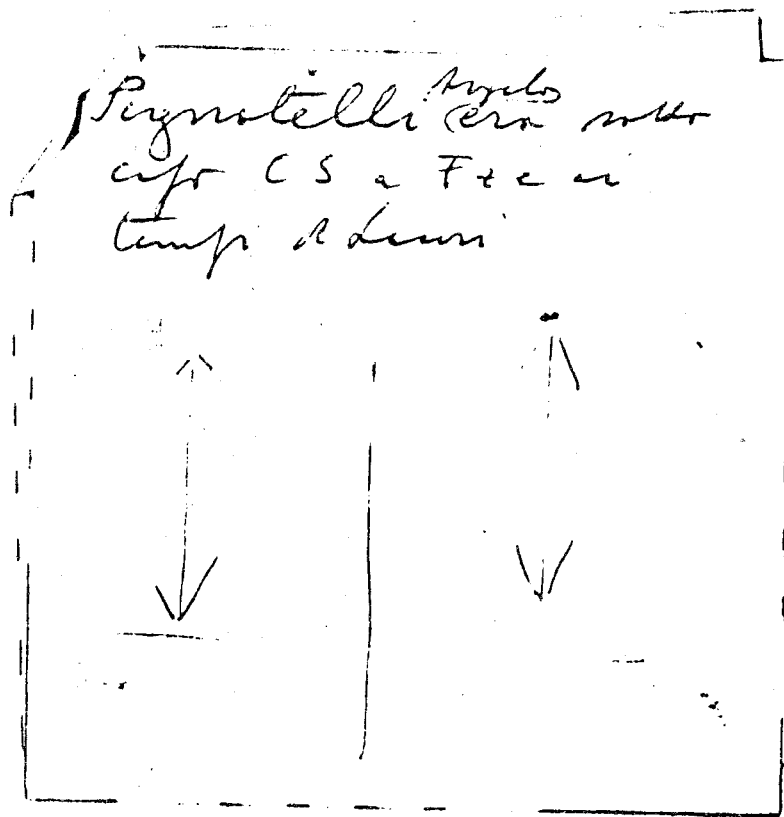 Pignatelli Angelo era sotto
capo CS a Fze ai
tempi di Lauri